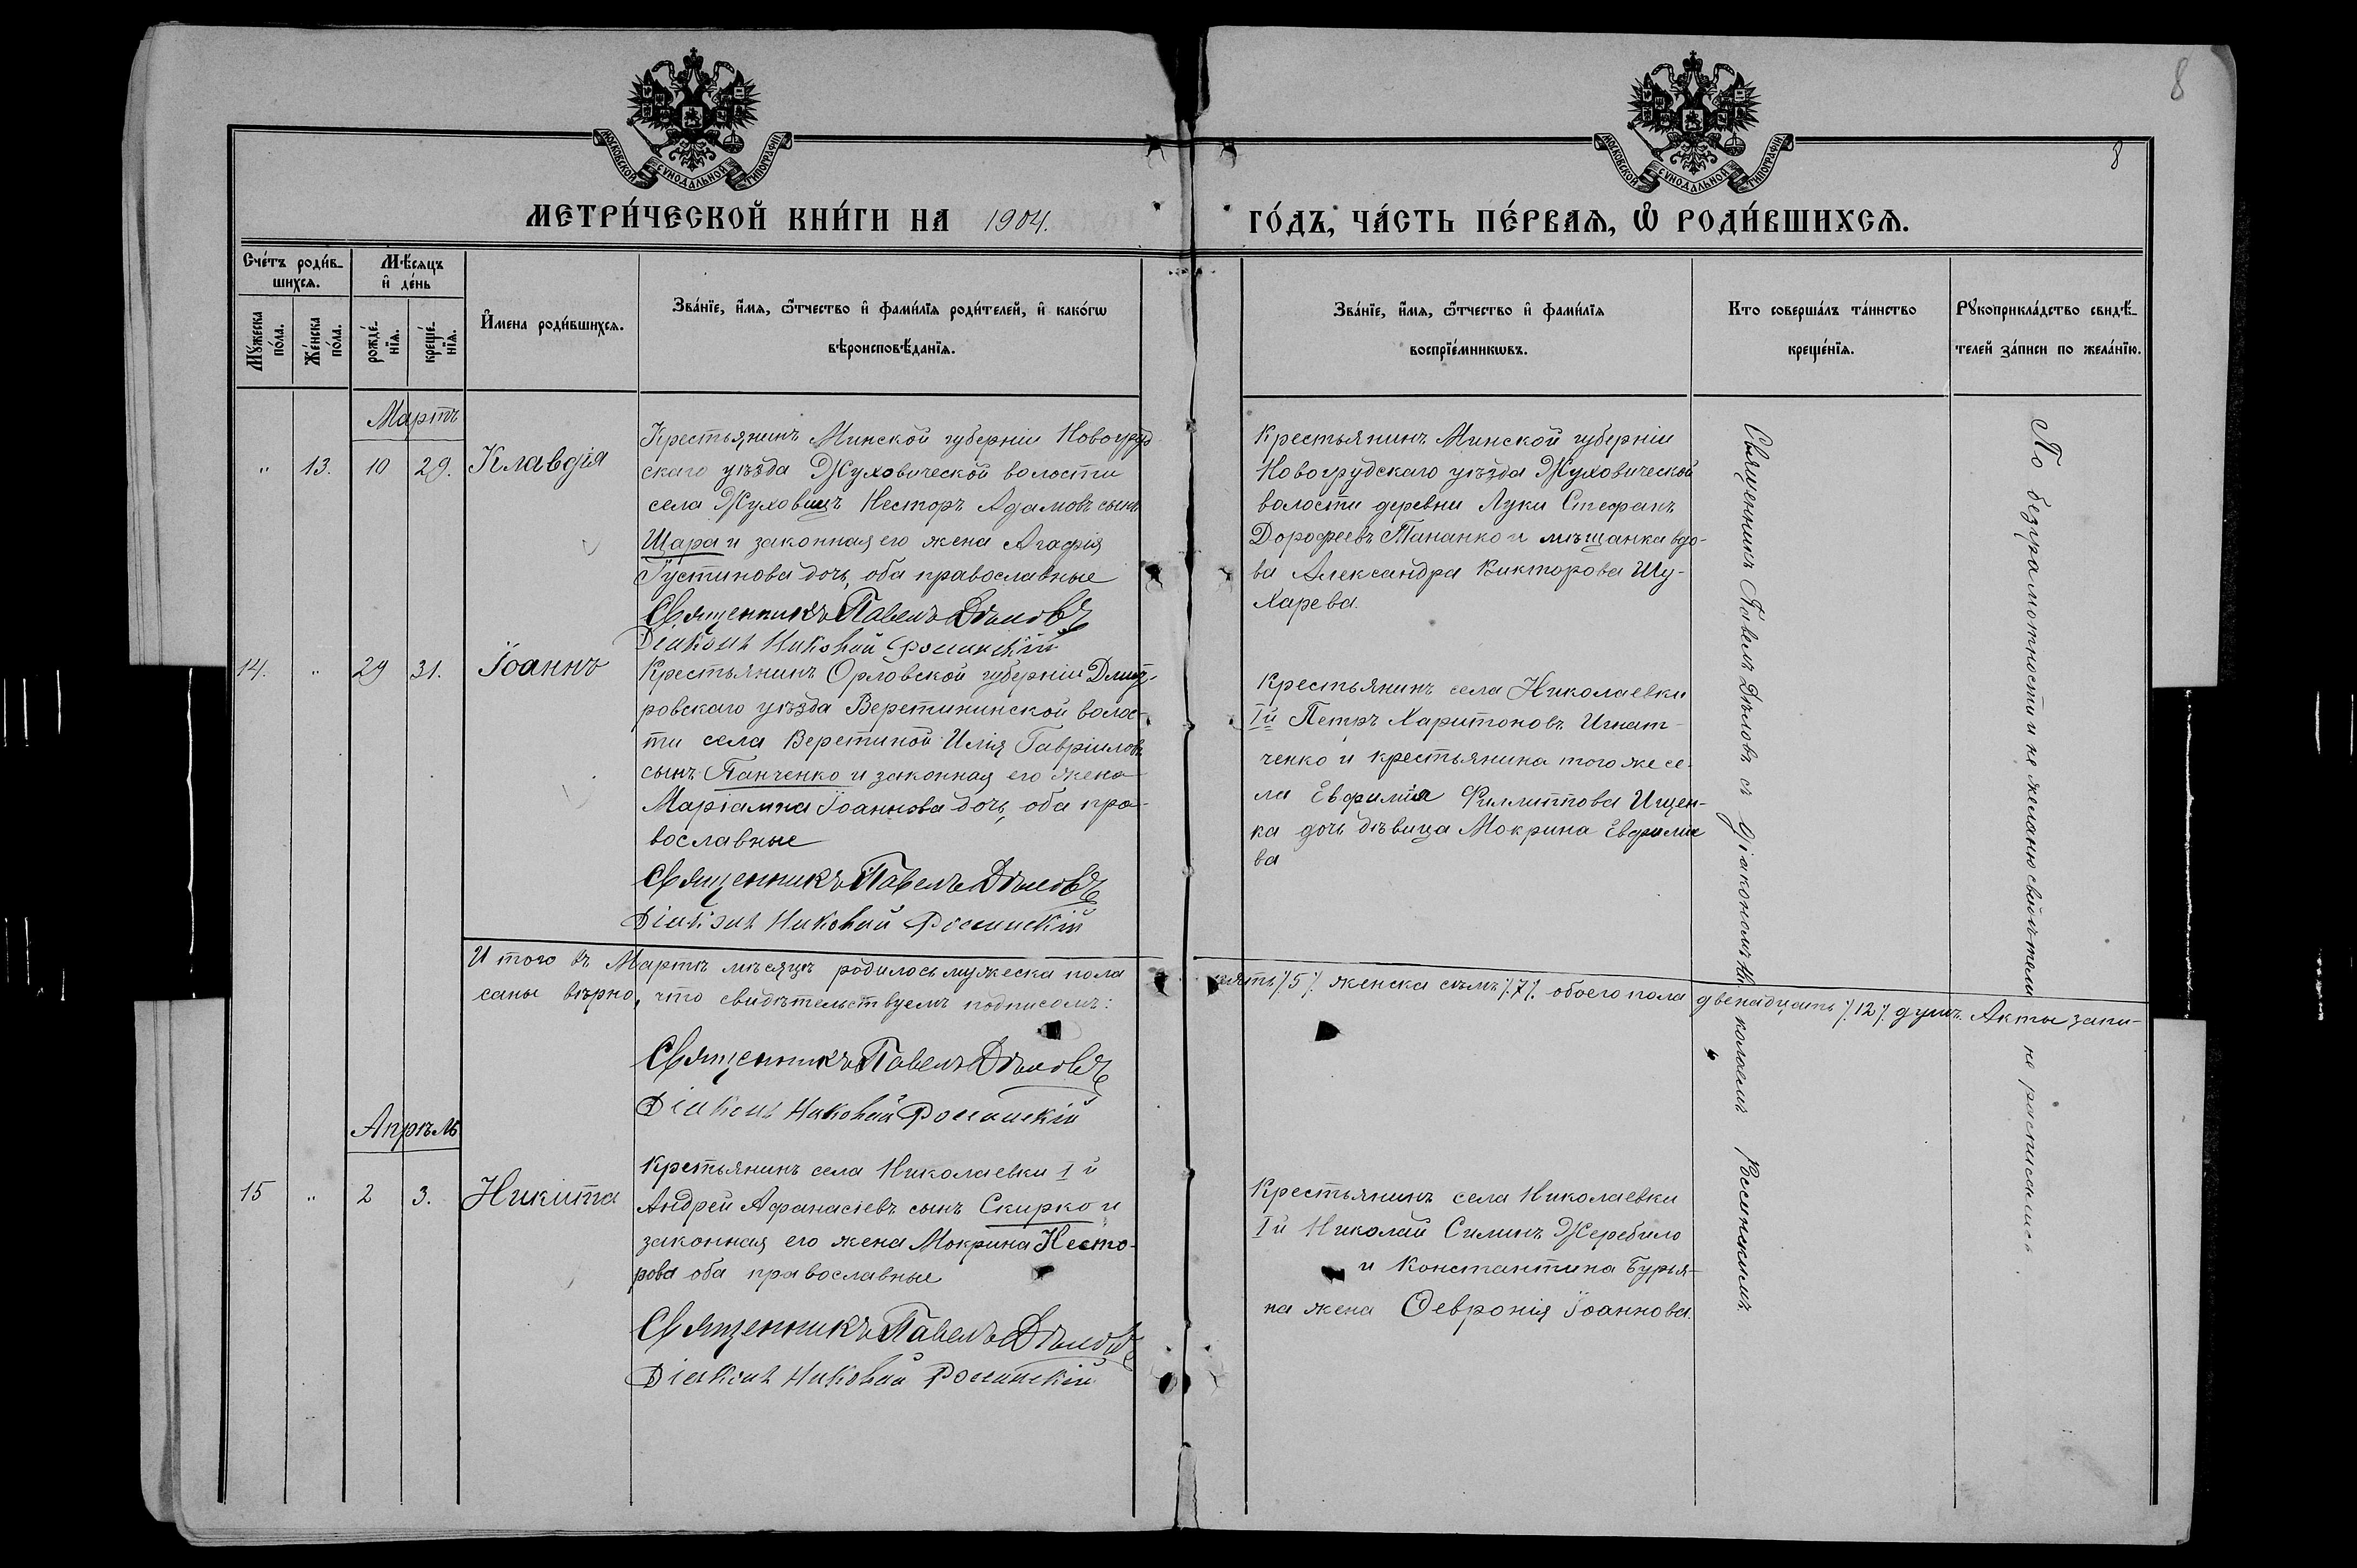 8
8
МОСКОВСКОЙ СѴНОДАЛЬНОЙ ТИПОГРАФІИ
МОСКОВСКОЙ СѴНОДАЛЬНОЙ ТИПОГРАФІИ
МЕТРИ́ЧЕСКОЙ КНИ́ГИ НА 1904. ГО́ДЪ, ЧА́СТЬ ПЕ́РВАѦ, Ѡ҆ РОДИ́ВШИХСѦ.
Сче́тъ роди́в-
шихсѧ.
Мꙋ́жеска по́ла.
Же́нска по́ла.
Мѣ́сѧцъ
и҆ де́нь
рожде́-
нїѧ.
креще́-
нїѧ.
И҆мена роди́вшихсѧ.
Зва́нїе, и҆́мѧ, ѻ҆́тчество и҆ фами́лїѧ роди́телей, и҆ како́гѡ
вѣроисповѣ́данїѧ.
Зва́нїе, и҆́мѧ, ѻ҆́тчество и҆ фами́лїѧ
воспрїе́мникѡвъ.
Кто соверша́лъ та́инство
креще́нїѧ.
Рꙋкоприкла́дство свидѣ́-
телей за́писи по жела́нїю.
Мартъ
" 13. 10 29. Клавдія
Крестьянинъ Минской губерніи Новогруд
скаго уѣзда Жуховической волости
села Жуховицъ Несторъ Адамовъ сынъ
Шара и законная его жена Агафія
Густинова дочь, оба православные
Священникъ Павелъ Дѣловъ
Діаконъ Николай Россинскій
Крестьянинъ Минской губерніи
Новогрудскаго уѣзда Жуховической
волости деревни Луки Стефанъ
Дорофеевъ Пананко и мѣщанка вдо-
ва Александра Викторова Шу-
харева.
14. " 29 31. Іоаннъ
Крестьянинъ Орловской губерніи Дмит-
ровскаго уѣзда Веретининской волос-
ти села Веретиной Илія Гавріиловъ
сынъ Панченко и законная его жена
Маріамна Іоаннова дочь, оба пра-
вославные
Священникъ Павелъ Дѣловъ
Діаконъ Николай Россинскій
Крестьянинъ села Николаевки
Iй Петръ Харитоновъ Игнат-
ченко и крестьянина того же се-
ла Евфимія Филиппова Ищен-
ка дочь дѣвица Мокрина Евфимие
ва
Итого въ Мартѣ мѣсяцѣ родилось мужеска пола пять /5/. женска семь /.7/. обоего пола двенадцать /.12/. душъ. Акты запи-
саны вѣрно, что свидѣтельствуемъ подписомъ:
Священникъ Павелъ Дѣловъ
Діаконъ Николай Россинскій
Апрѣль
15 " 2 3. Никита
Крестьянинъ села Николаевки I й
Андрей Афанасіевъ сынъ Скирко и
законная его жена Мокрина Несто-
рова оба православные
Священникъ Павелъ Дѣловъ
Діаконъ Николай Россинскій
Крестьянинъ села Николаевки
Iй Николай Силинъ Жеребило
и Константина Бурья-
на жена Февронія Іоаннова.
Священникъ Павелъ Дѣловъ съ діакономъ Николаемъ Россинскимъ.
По безграмотности и не желанію свидѣтели не росписались.